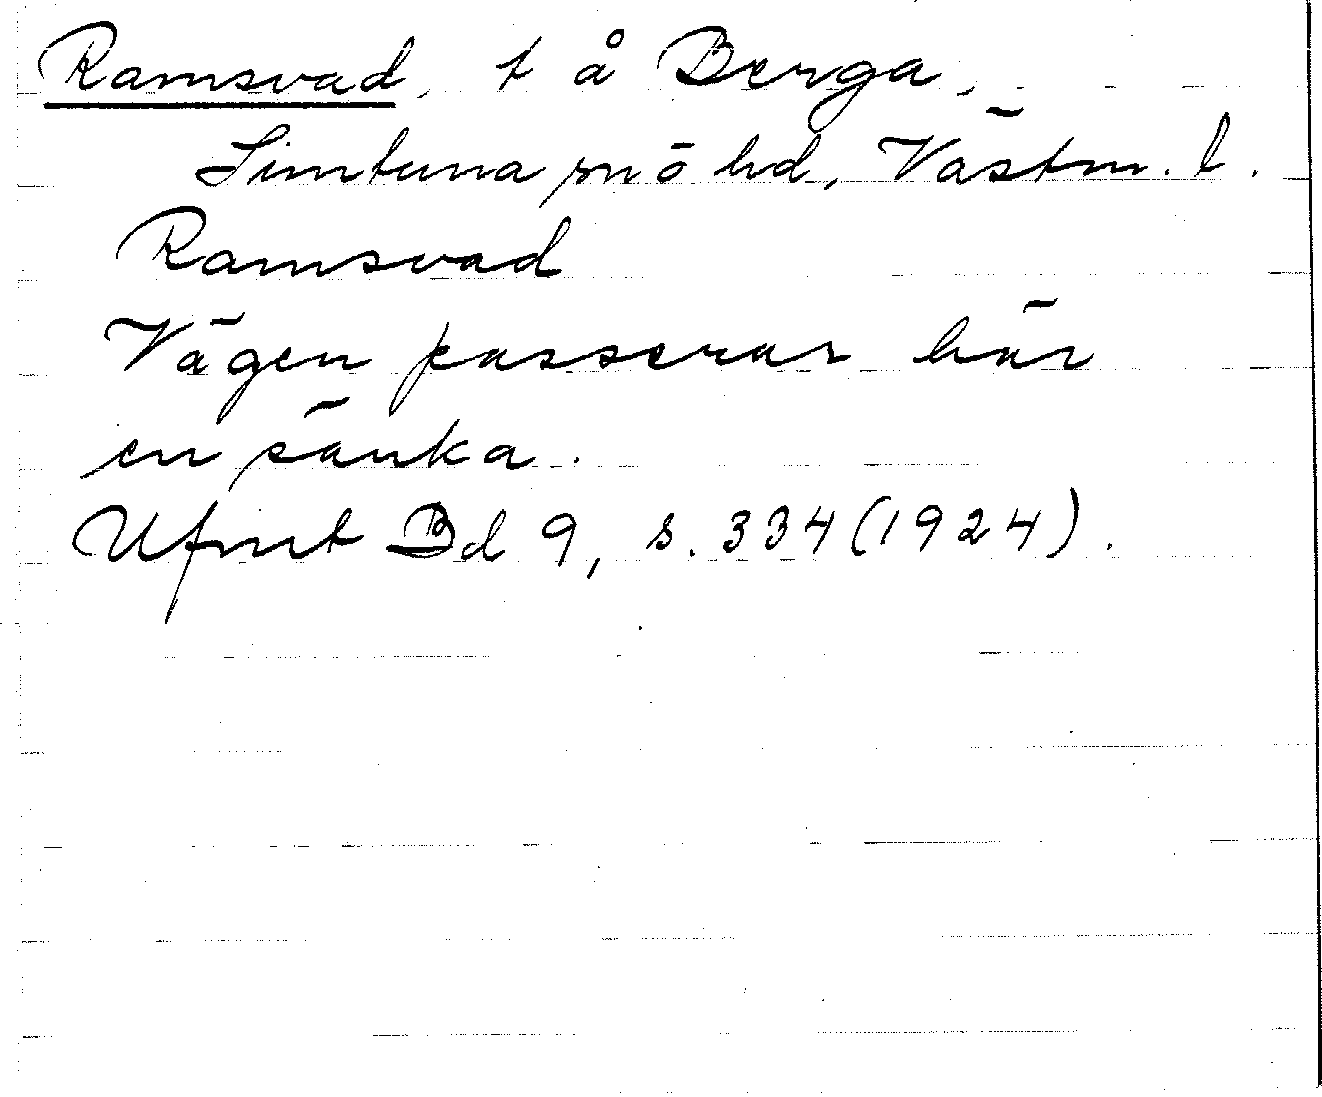 Ramsvad, t å Berga,
Simtuna sn o hd, Västm. l.
Ramsvad
Vägen passerar här
en sänka.
Ufmt Bd 9, s. 334 (1924).